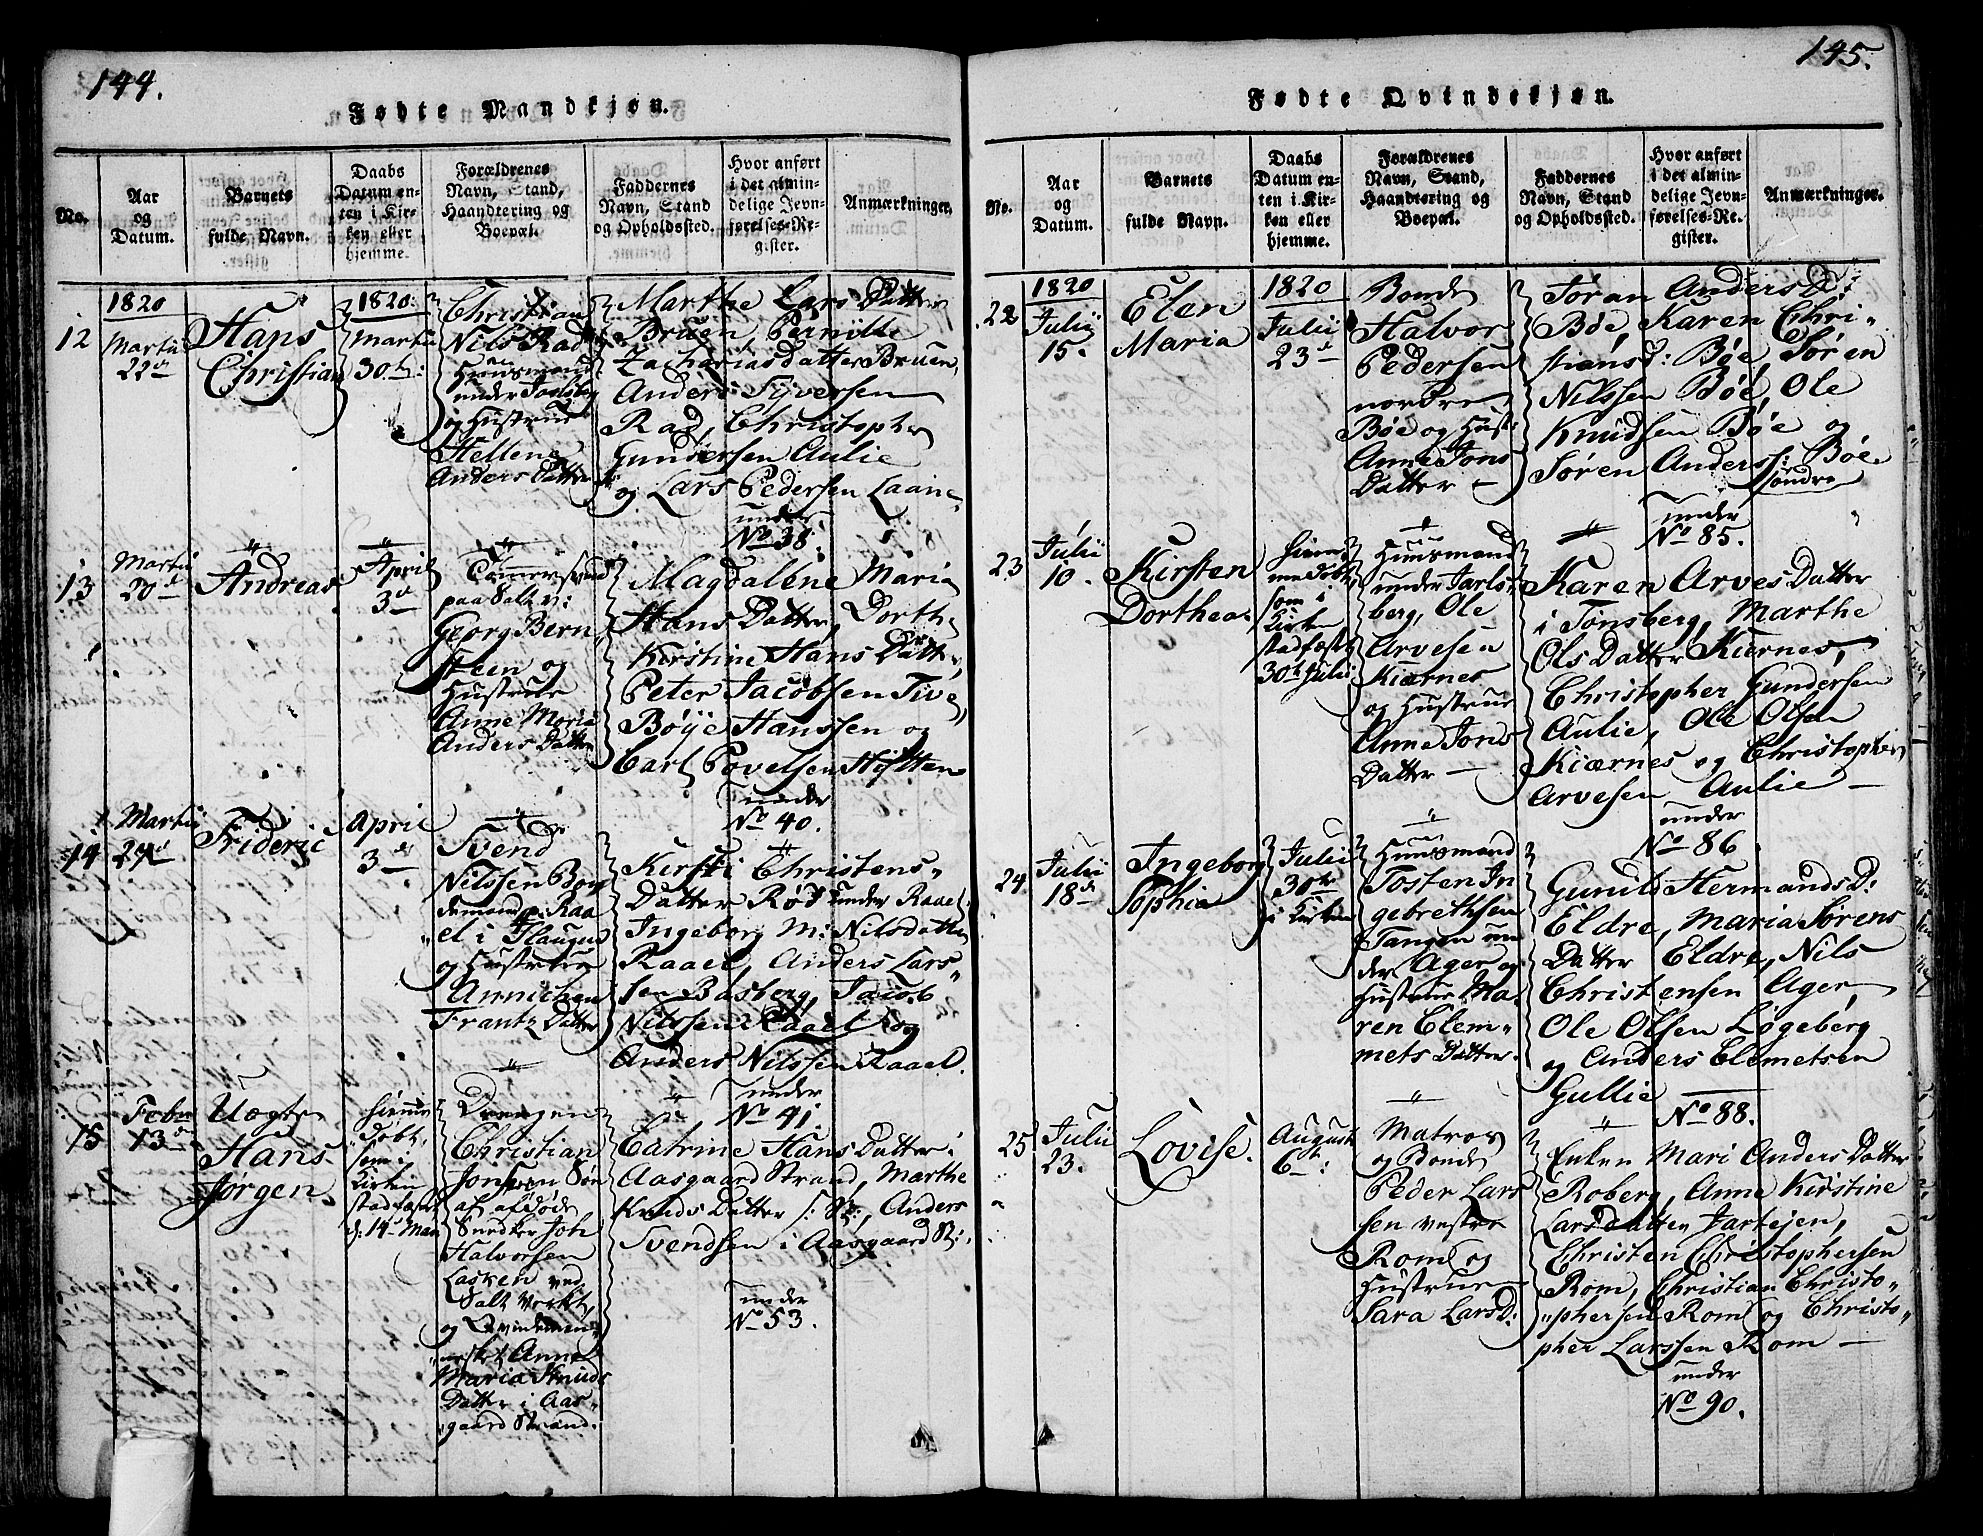 144.
Fødte Mandkjøn.
No.
Aar
og
Datum.
Barnets
fulde Navn.
Daabs
Datum en-
ten i Kir-
ken eller
hjemme.
Forældrenes
Navn, Stand,
Haandtering og
Boepæl.
Faddernes
Navn, Stand
og Opholdssted.
Hvor anført
i det almin-
delige Jevn-
førelses-Re-
gister.
Anmærkninger.
12
1820
Martii
22de
Hans
Christian
1820:
Martii
30te:
Christian
Nils Rad
Huusmand
under Jarlsbg
og Hustrue
Hellene
Anders Datter
Marthe Lars Datter
Bruen, Pernille
Zacharias datter Bruen,
Anders Syversen
Rad, Christopher
Gundersen Aulie
og Lars Pedersen Laane
under
No 38.
13
Martii
20de
Andreas
April
3de
Tømmersvend
paa Saltv:
Georg Bern
steen og
Hustrue
Anne Maria
Anders Datter
Magdalene Maria
Hans Datter, Dorthe
Kirstine Hans Datter,
Peter Jacobsen Tive,
Bøye Hanssen og
Carl Povelsen Højtten
under
No 40.
14
Martii
27de
Frideric
April
3de
Svend
Nilssen Boy
demand p: Raa
el i Slaugen
og Hustrue
Annichen
Frantz Datter
Kirsti Christens
Datter Rød under Raael,
Ingeborg M: Nilsdatter
Raael, Anders Lars
sen Basberg, Jacob
Nilssen Raael og
Anders Nilssen Raael.
under
No 41.
15
Febr
13de
Uægte
Hans
Jørgen
hiemme
døbt,
som i
Kirken
stadfæstet
d: 14de Maii
Drengen
Christian
Jonsen Søn
af afdøde
Snedker Joh
Halvorsen
Lasken ved
Salt Værket,
og Qvindemen
nesket Anne
Maria Knuds
Datter i Aas
gaard Strand.
Catrine Hans Datter i
Aasgaard Strand, Marthe
Knuds Datter s: St:, Anders
Svendsen i Aasgaard St:
under
No 53.
145.
Fødte Qvindekjøn.
No.
Aar
og
Datum.
Barnets
fulde Navn.
Daabs
Datum en-
ten i Kir-
ken eller
hjemme.
Forældrenes
Navn, Stand,
Haandtering og
Boepæl.
Faddernes
Navn, Stand
og Opholdssted.
Hvor anført
i det almin-
delige Jevn-
førelses-Re-
gister.
Anmærkninger.
22
1820
Julii
15.
Elen
Maria
1820
Julii
23de
Bonde
Halvor
Pedersen
nordre
Bøe og Hust:
Anne Jons
Datter
Søran Anders D:
Bøe, Karen Chri
stiansd: Bøe, Søren
Nilssen Bøe, Ole
Knudsen Bøe og
Søren Anders: Bøe
søndre
under
No 85.
23
Julii
10.
Kirsten
Dorthea
hiem
me døbt,
som i
Kirken
stadfæstet
30te Julii
Huusmand
under Jarls
berg, Ole
Arvesen
Kiærnes
og Hustrue
Anne Jons
Datter
Karen Arves Datter
i Tønsberg, Marthe
Ols Datter Kiærnes,
Christopher Gundersen
Aulie, Ole Olsen
Kiærnes og Christopher
Arvesen Aulie
under
No 86
24.
Julii
18de
Ingeborg
Sophia
Julii
30te
i Kirken
Huusmand
Tosten In
gebrethsen
Tangen un
der Ager og
Hustrue Ma
ren Clem
mets Datter.
Gunild Hermands D:
Eldre, Maria Sørens
Datter Eldre, Nils
Christensen Ager,
Ole Olsen Løgeberg
og Anders Clemetsen
Gullie
No 88.
25.
Julii
23.
Lovise.
August
6te:
Matros
og Bonde
Peder Lars
sen vestre
Rom og
Hustrue
Sara Larsd:
Enken Mari Anders Datter
Roberg, Anne Kirstine
Larsdatter Jartejen,
Christen Christophersen
Rom, Christian Christo
phersen Rom og Christo
pher Larssen Rom
under
No 90.